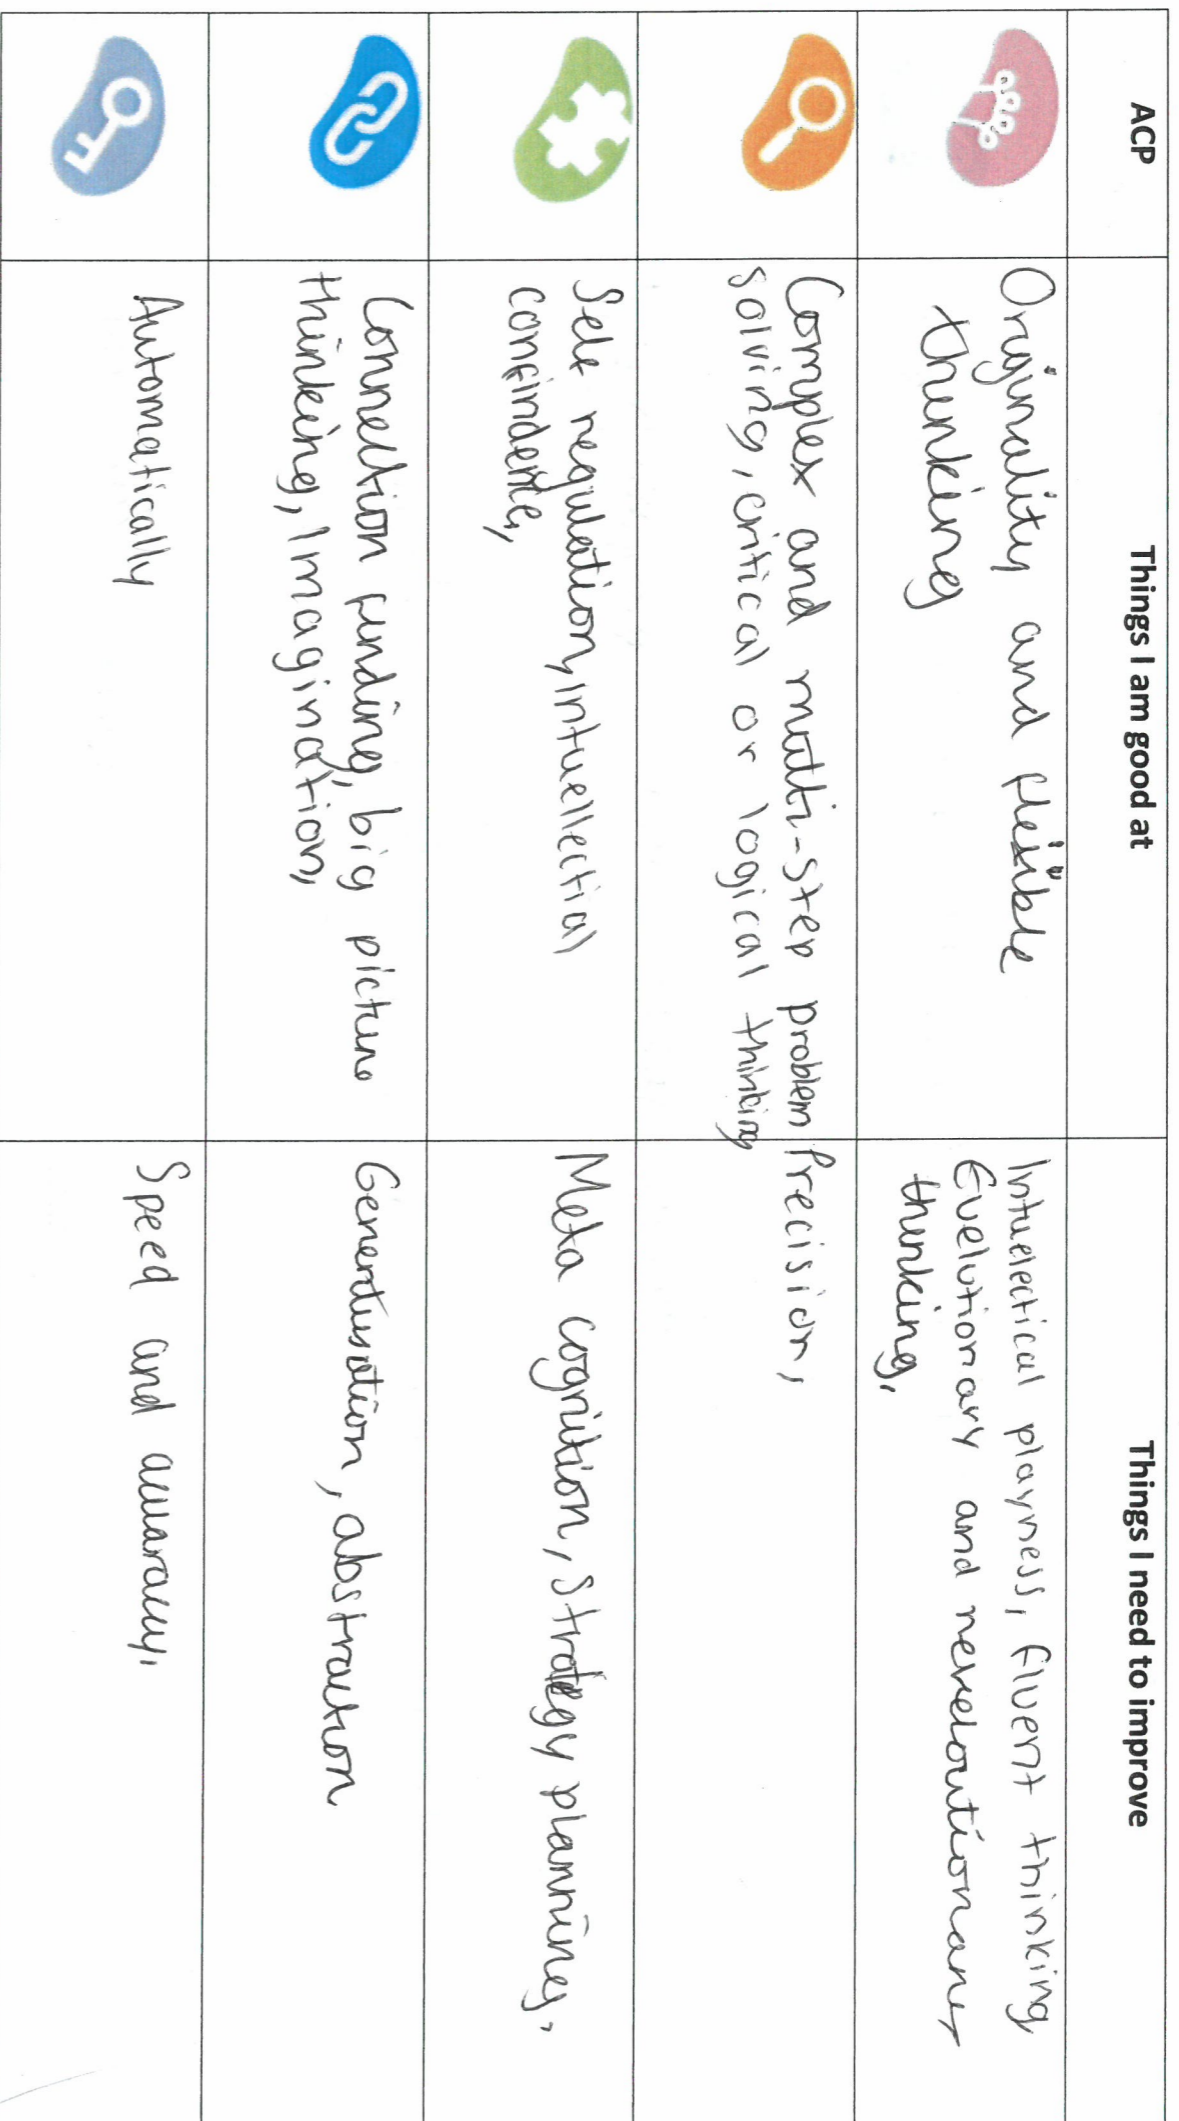 ACP
Things I am good at
Things I need to improve
Originality and flexible
thinking
Intuelectical playness, fluent thinking
Evelutionary and reveloutionary
thinking,
Complex and multi-step problem
solving, critical or logical thinking
Precision,
Self regulation, intuellectial
confindence,
Meta cognition, strategy planning,
Connection finding, big picture
thinking, Imagination,
Generlisation, abstraction
Automatically
Speed and accuracy,